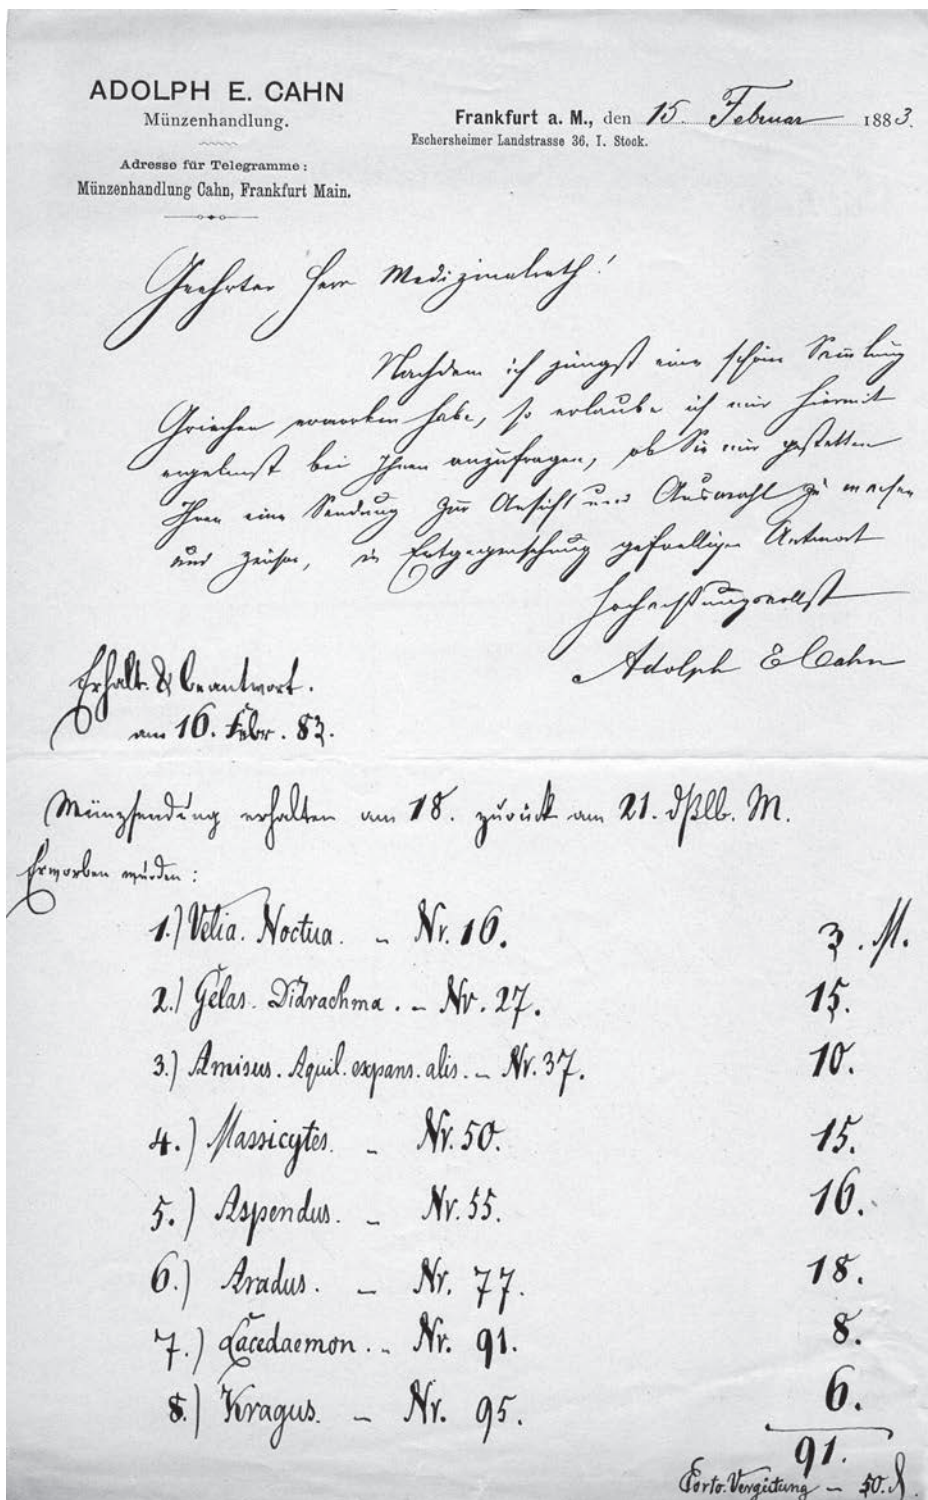 ADOLPH E. CAHN
Münzenhandlung.
Adresse für Telegramme:
Münzenhandlung Cahn, Frankfurt Main.
Frankfurt a. M., den 15. Februar 1883.
Eschersheimer Landstrasse 36, I. Stock.
Geehrter Herr Medizinalrath!
Nachdem ich jüngst eine schöne Sammlung
Griechen erworben habe, so erlaube ich mir hiermit
ergebenst bei Ihnen anzufragen, ob Sie mir gestatten
Ihnen eine Sendung zur Ansicht und Auswahl zu machen
und zeichne, in Entgegensehung gefälliger Antwort
Hochachtungsvollst
Adolph E Cahn
Erhalt. & beantwort.
am 16. Febr. 83.
Münzsendung erhalten am 18. zurück am 21. dßlb. M.
Erworben wurden:
1.) Velia. Noctua. – Nr. 16. 3. M.
2.) Gelas. Didrachma. – Nr. 27. 15.
3.) Amisus. Aquil. expans. alis. – Nr. 37. 10.
4.) Massicytes. – Nr. 50. 15.
5.) Aspendus. – Nr. 55. 16.
6.) Aradus. – Nr. 77. 18.
7.) Lacedaemon. – Nr. 91. 8.
8.) Kragus. – Nr. 95. 6.
91.
Porto-Vergütung – 50.